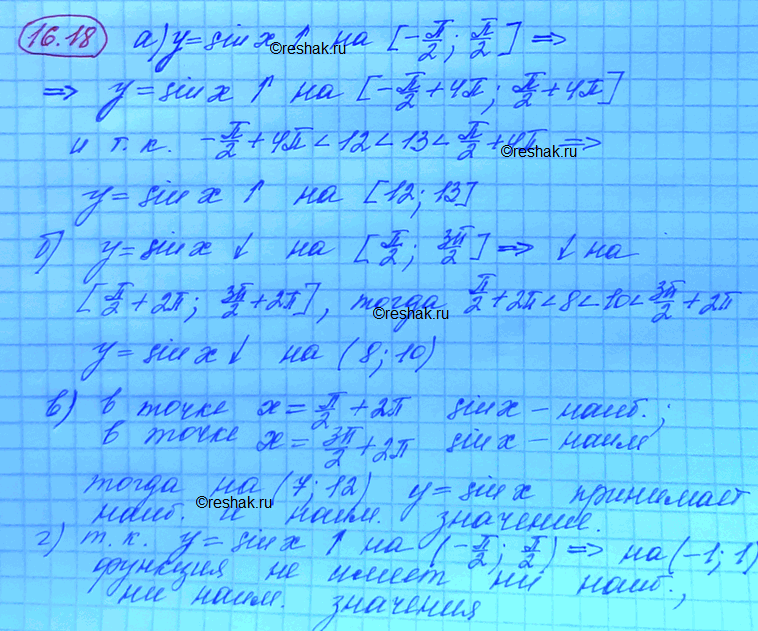 16.18 а) y = sin x ↑ на [-π/2; π/2] ⇒
©reshak.ru
⇒ y = sin x ↑ на [-π/2 + 4π; π/2 + 4π]
и т.к. -π/2 + 4π < 12 < 13 < π/2 + 4π ⇒
©reshak.ru
y = sin x ↑ на [12; 13]
б) y = sin x ↓ на [π/2; 3π/2] ⇒ ↓ на
[π/2 + 2π; 3π/2 + 2π], тогда π/2 + 2π < 8 < 10 < 3π/2 + 2π
©reshak.ru
y = sin x ↓ на (8; 10)
в) в точке x = π/2 + 2π sin x – наиб.;
в точке x = 3π/2 + 2π sin x – наим
тогда на (7; 12) y = sin x принимает
©reshak.ru
наиб. и наим. значение.
г) т.к. y = sin x ↑ на (-π/2; π/2) ⇒ на (-1; 1)
функция не имеет ни наиб.,
ни наим. значения